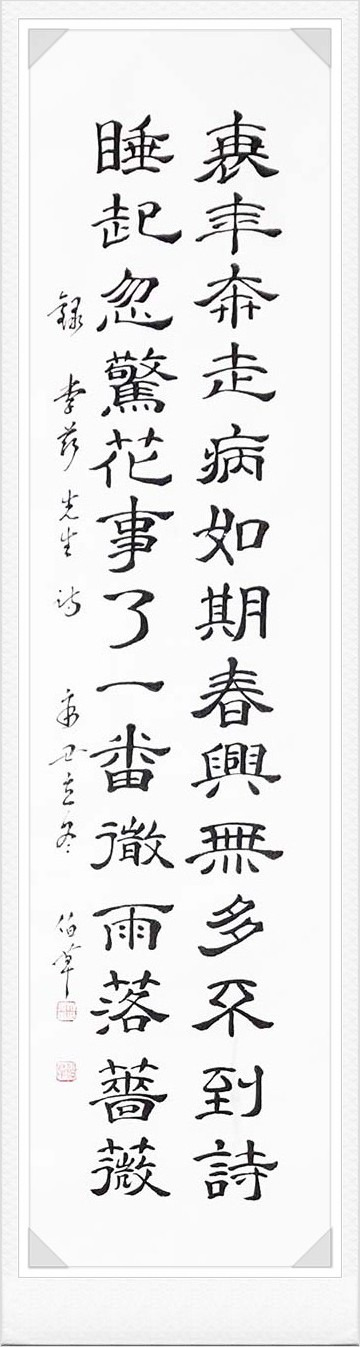 衰年奔走病如期春興無多不到詩
睡起忽驚花事了一番微雨落薔薇
錄 李慈先生詩 辛丑立冬 伯草